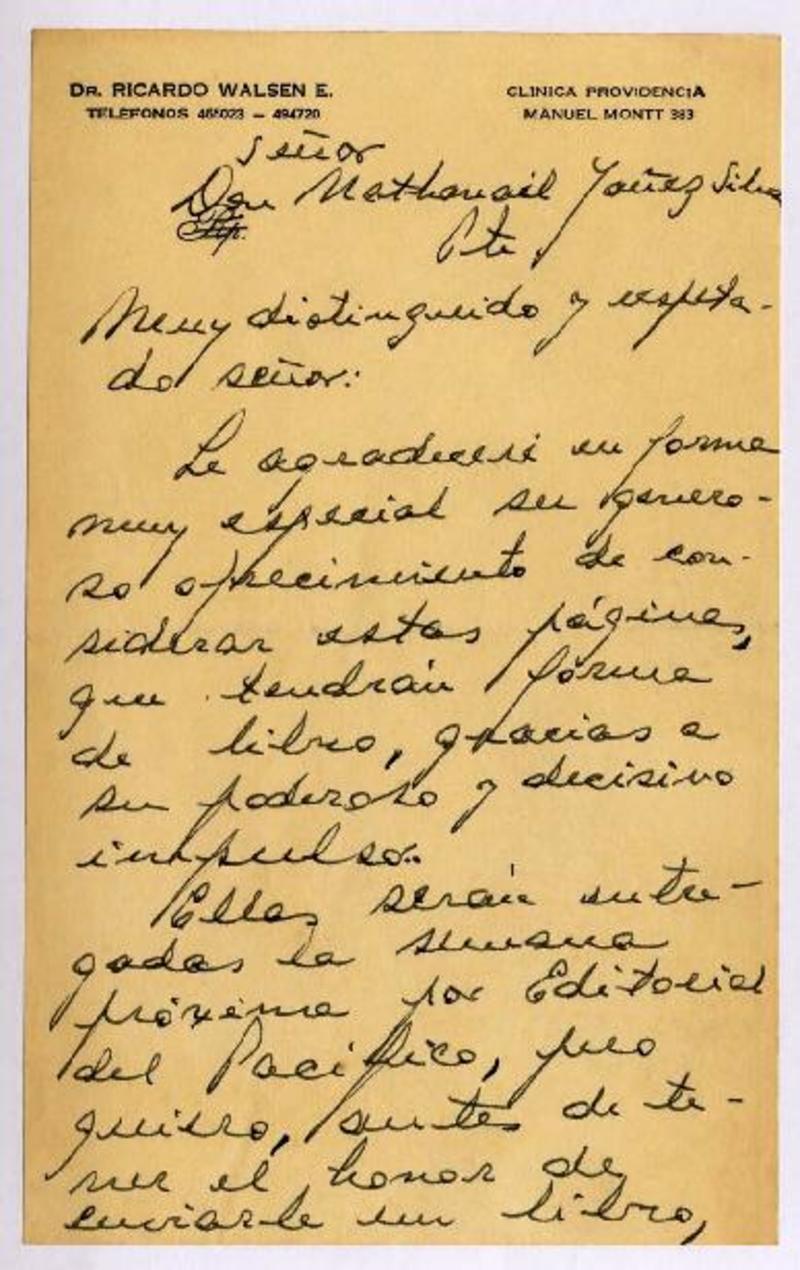 DR. RICARDO WALSEN E.
TELEFONOS 465023 – 494720
CLINICA PROVIDENCIA
MANUEL MONTT 383
Señor
Don Nathanail Yañez Silva
Pte.
Muy distinguido y respeta-
do señor:
Le agradeceré en forma
muy especial su genero-
so ofrecimiento de con-
siderar estas páginas,
que tendrán forma
de libro, gracias a
su poderoso y decisivo
impulso.
Ellas serán entre-
gadas la semana
próxima por Editorial
del Pacífico, pero
quiero, antes de te-
ner el honor de
enviarle un libro,